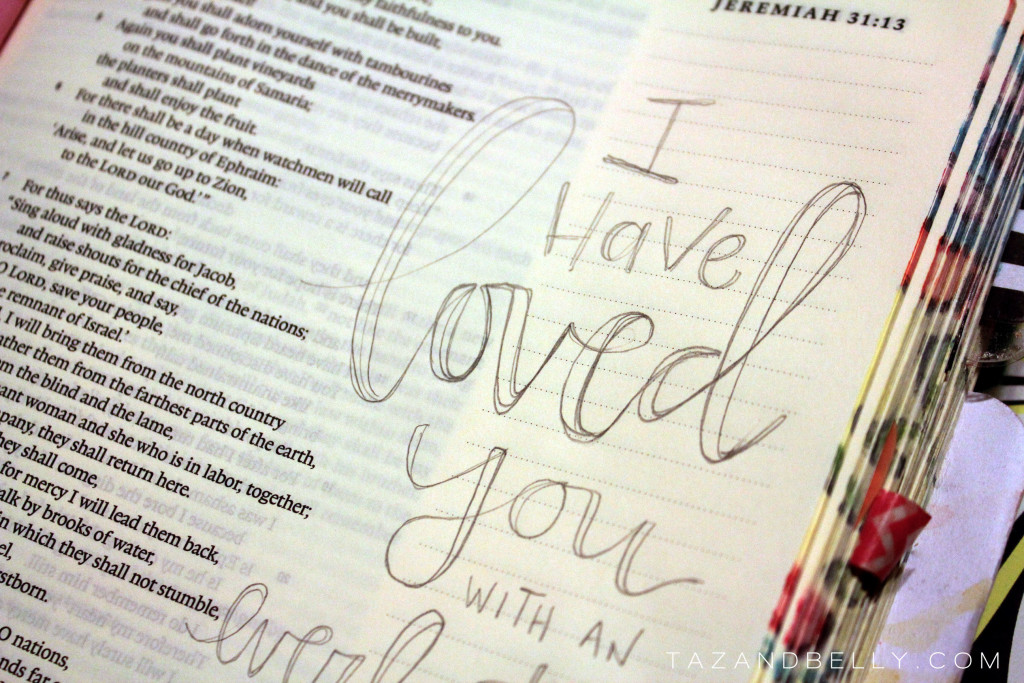 JEREMIAH 31:13
faithfulness to you.
and you shall be built,
you shall adorn yourself with tambourines
and shall go forth in the dance of the merrymakers.
Again you shall plant vineyards
on the mountains of Samaria;
the planters shall plant
and shall enjoy the fruit.
6 For there shall be a day when watchmen will call
in the hill country of Ephraim:
'Arise, and let us go up to Zion,
to the LORD our God.'"
7 For thus says the LORD:
"Sing aloud with gladness for Jacob,
and raise shouts for the chief of the nations;
proclaim, give praise, and say,
O LORD, save your people,
remnant of Israel.'
I will bring them from the north country
gather them from the farthest parts of the earth,
the blind and the lame,
woman and she who is in labor, together;
they shall return here.
they shall come,
for mercy I will lead them back,
walk by brooks of water,
in which they shall not stumble,
O nations,
I
Have
loved
you
WITH AN
TAZANDBELLY.COM